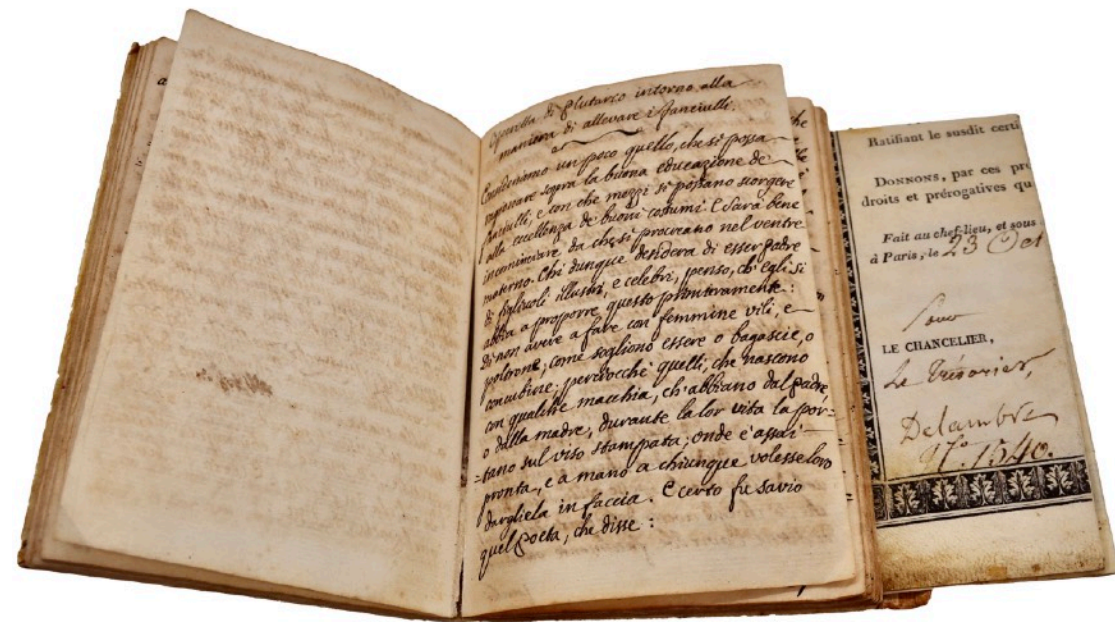 Operetta di Plutarco intorno alla
maniera di allevare i fanciulli.
Consideriamo un poco quello, che si possa
ragionare sopra la buona educazione de
fanciulli, e con che mezzi si possano scorgere
alla eccellenza de buoni costumi. E sarà bene
incominciare da che si procreano nel ventre
materno. Chi dunque desidera di esser padre
di figliuoli illustri, e celebri, penso, ch'egli si
abbia a proporre questo primieramente:
Di non avere a fare con femmine vili, e
poltrone; come sogliono essere o bagascie, o
concubine; perciocchè quelli, che nascono
con qualche macchia, ch'abbiano dal padre
o dalla madre, durante la lor vita la por=
=tano sul viso stampata; onde è assai
pronta, e a mano a chiunque volesse loro
dargliela in faccia. E certo fu savio
quel poeta, che disse:
Ratifiant le susdit certi
DONNONS, par ces pr
droits et prérogatives qu
Fait au chef-lieu, et sous
à Paris, le 23 Oct
Pour
LE CHANCELIER,
Le Trésorier,
Delambre
N.º 1540.